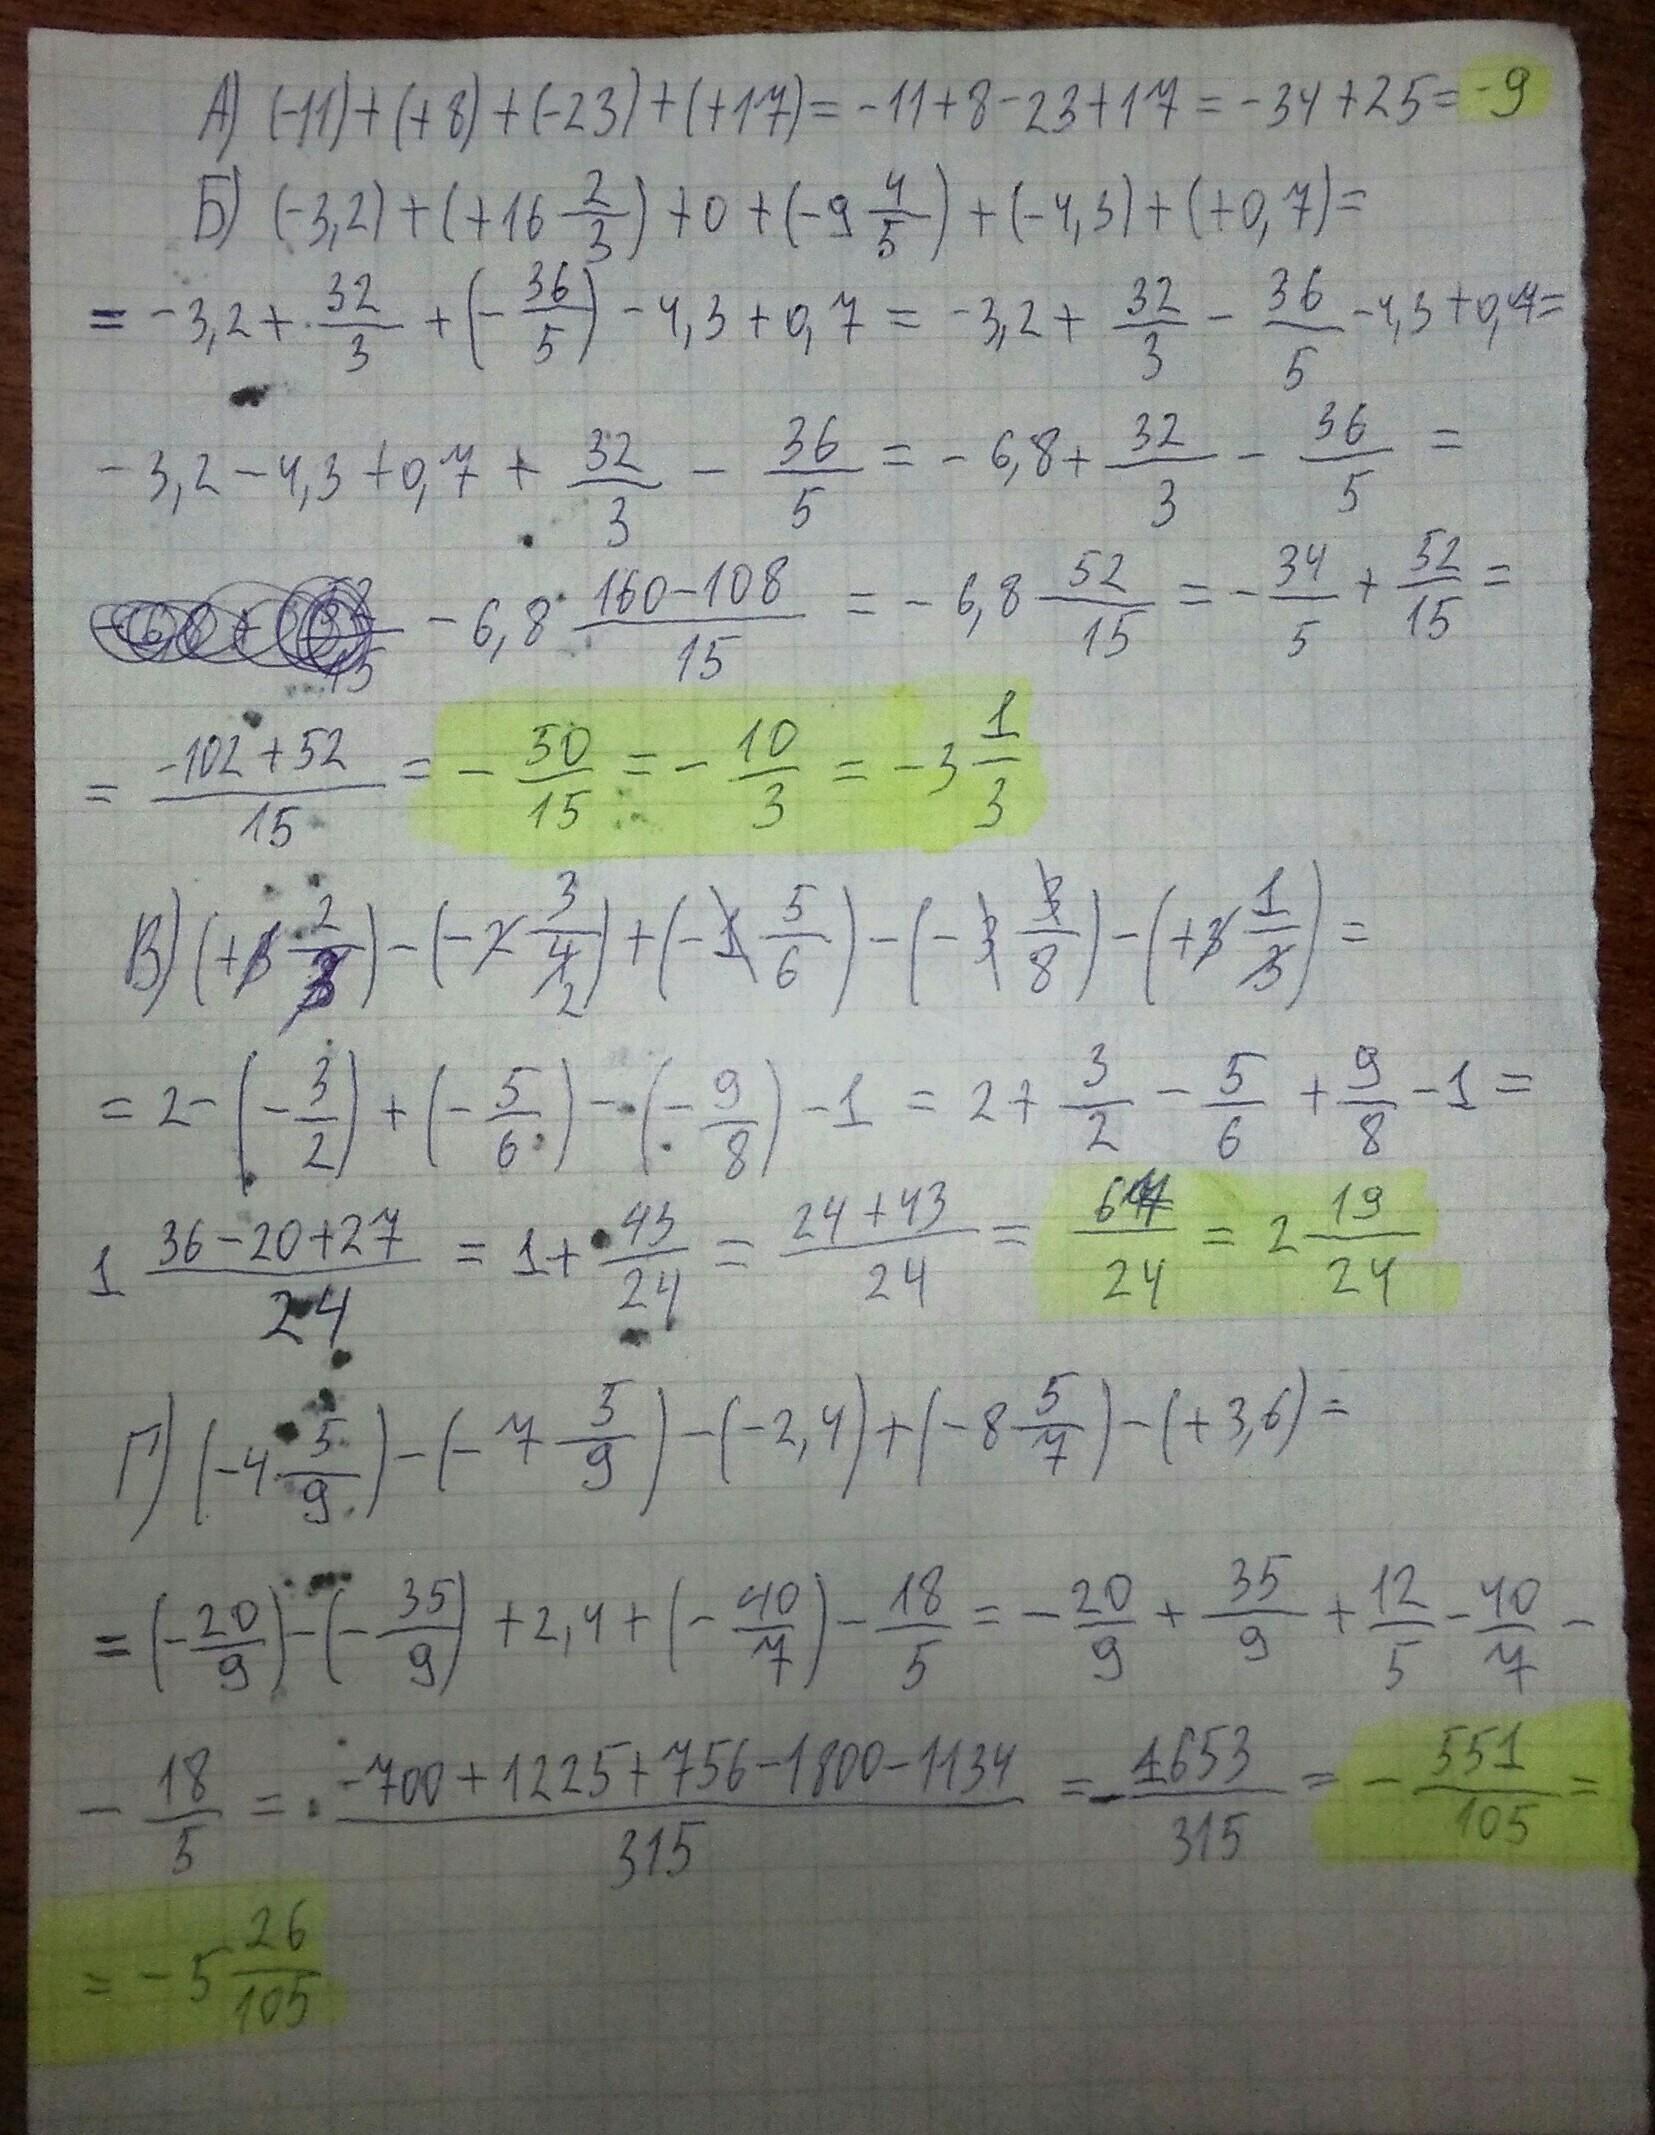 А) (-11)+(+8)+(-23)+(+17)= -11+8-23+17= -34+25= -9
Б) (-3,2)+(+16 2/3)+0+(-9 4/5)+(-4,3)+(+0,7)=
= -3,2+ 32/3 +(- 36/5) -4,3+0,7= -3,2+ 32/3 - 36/5 -4,3+0,7=
-3,2-4,3+0,7+ 32/3 - 36/5 = -6,8+ 32/3 - 36/5 =
-6,8 160-108/15 = -6,8 52/15 = - 34/5 + 52/15 =
= -102+52/15 = - 50/15 = - 10/3 = -3 1/3
В) (+ 2/3)-(-2 3/4 2)+(-1 5/6)-(- /8)-(+3 1/3)=
= 2-(- 3/2)+(- 5/6)-(- 9/8)-1 = 2+ 3/2 - 5/6 + 9/8 -1=
1 36-20+27/24 = 1+ 43/24 = 24+43/24 = 67/24 = 2 19/24
Г) (-4 5/9)-(-7 5/9)-(-2,4)+(-8 5/7)-(+3,6)=
= (- 20/9)-(- 35/9)+2,4+(- 40/7)- 18/5 = - 20/9 + 35/9 + 12/5 - 40/7 -
- 18/5 = -700+1225+756-1800-1134/315 = - 1653/315 = - 551/105 =
= -5 26/105